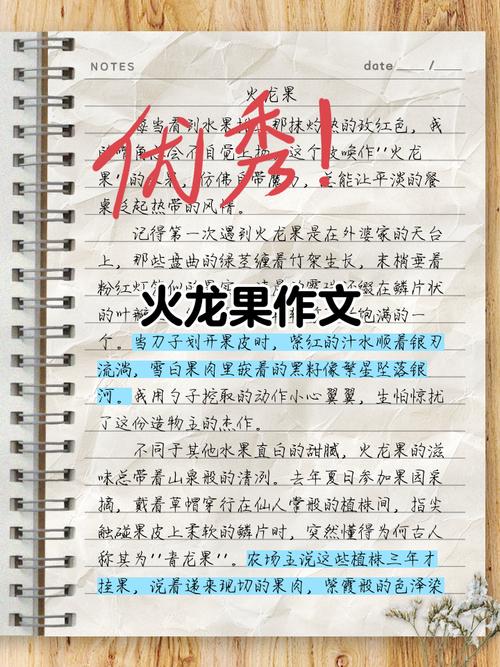 NOTES
date ____ / ____
火龙果
每当看到水果摊上那抹灼热的玫红色，我
的嘴角总会不自觉上扬。这个被唤作"火龙
果"的水果，仿佛自带魔力，总能让平淡的餐
桌泛起热带的风情。
优秀！
记得第一次遇到火龙果是在外婆家的天台
上，那些盘曲的绿茎缠着竹架生长，末梢垂着
粉红灯笼似的果实。清晨的露珠还缀在鳞片状
的叶瓣
饱满的一
火龙果作文
个。当刀子划开果皮时，紫红的汁水顺着银刃
流淌，雪白果肉里嵌着的黑籽像繁星坠落银
河。我用勺子挖取的动作小心翼翼，生怕惊扰
了这份造物主的杰作。
不同于其他水果直白的甜腻，火龙果的滋
味总带着山泉般的清冽。去年夏日参加果园采
摘，戴着草帽穿行在仙人掌般的植株间，指尖
触碰果皮上柔软的鳞片时，突然懂得为何古人
称其为"青龙果"。农场主说这些植株三年才
挂果，说着递来现切的果肉，紫霞般的色泽染